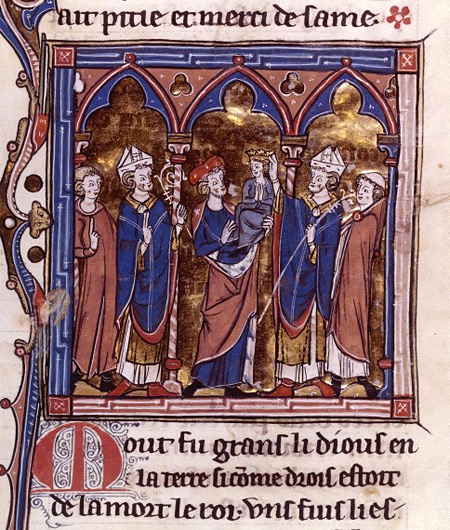 ait pitie et merci de same.
Mout fu grans li dious en
la terre sicōme drois estoit
de la mort le roi. vns fius li es